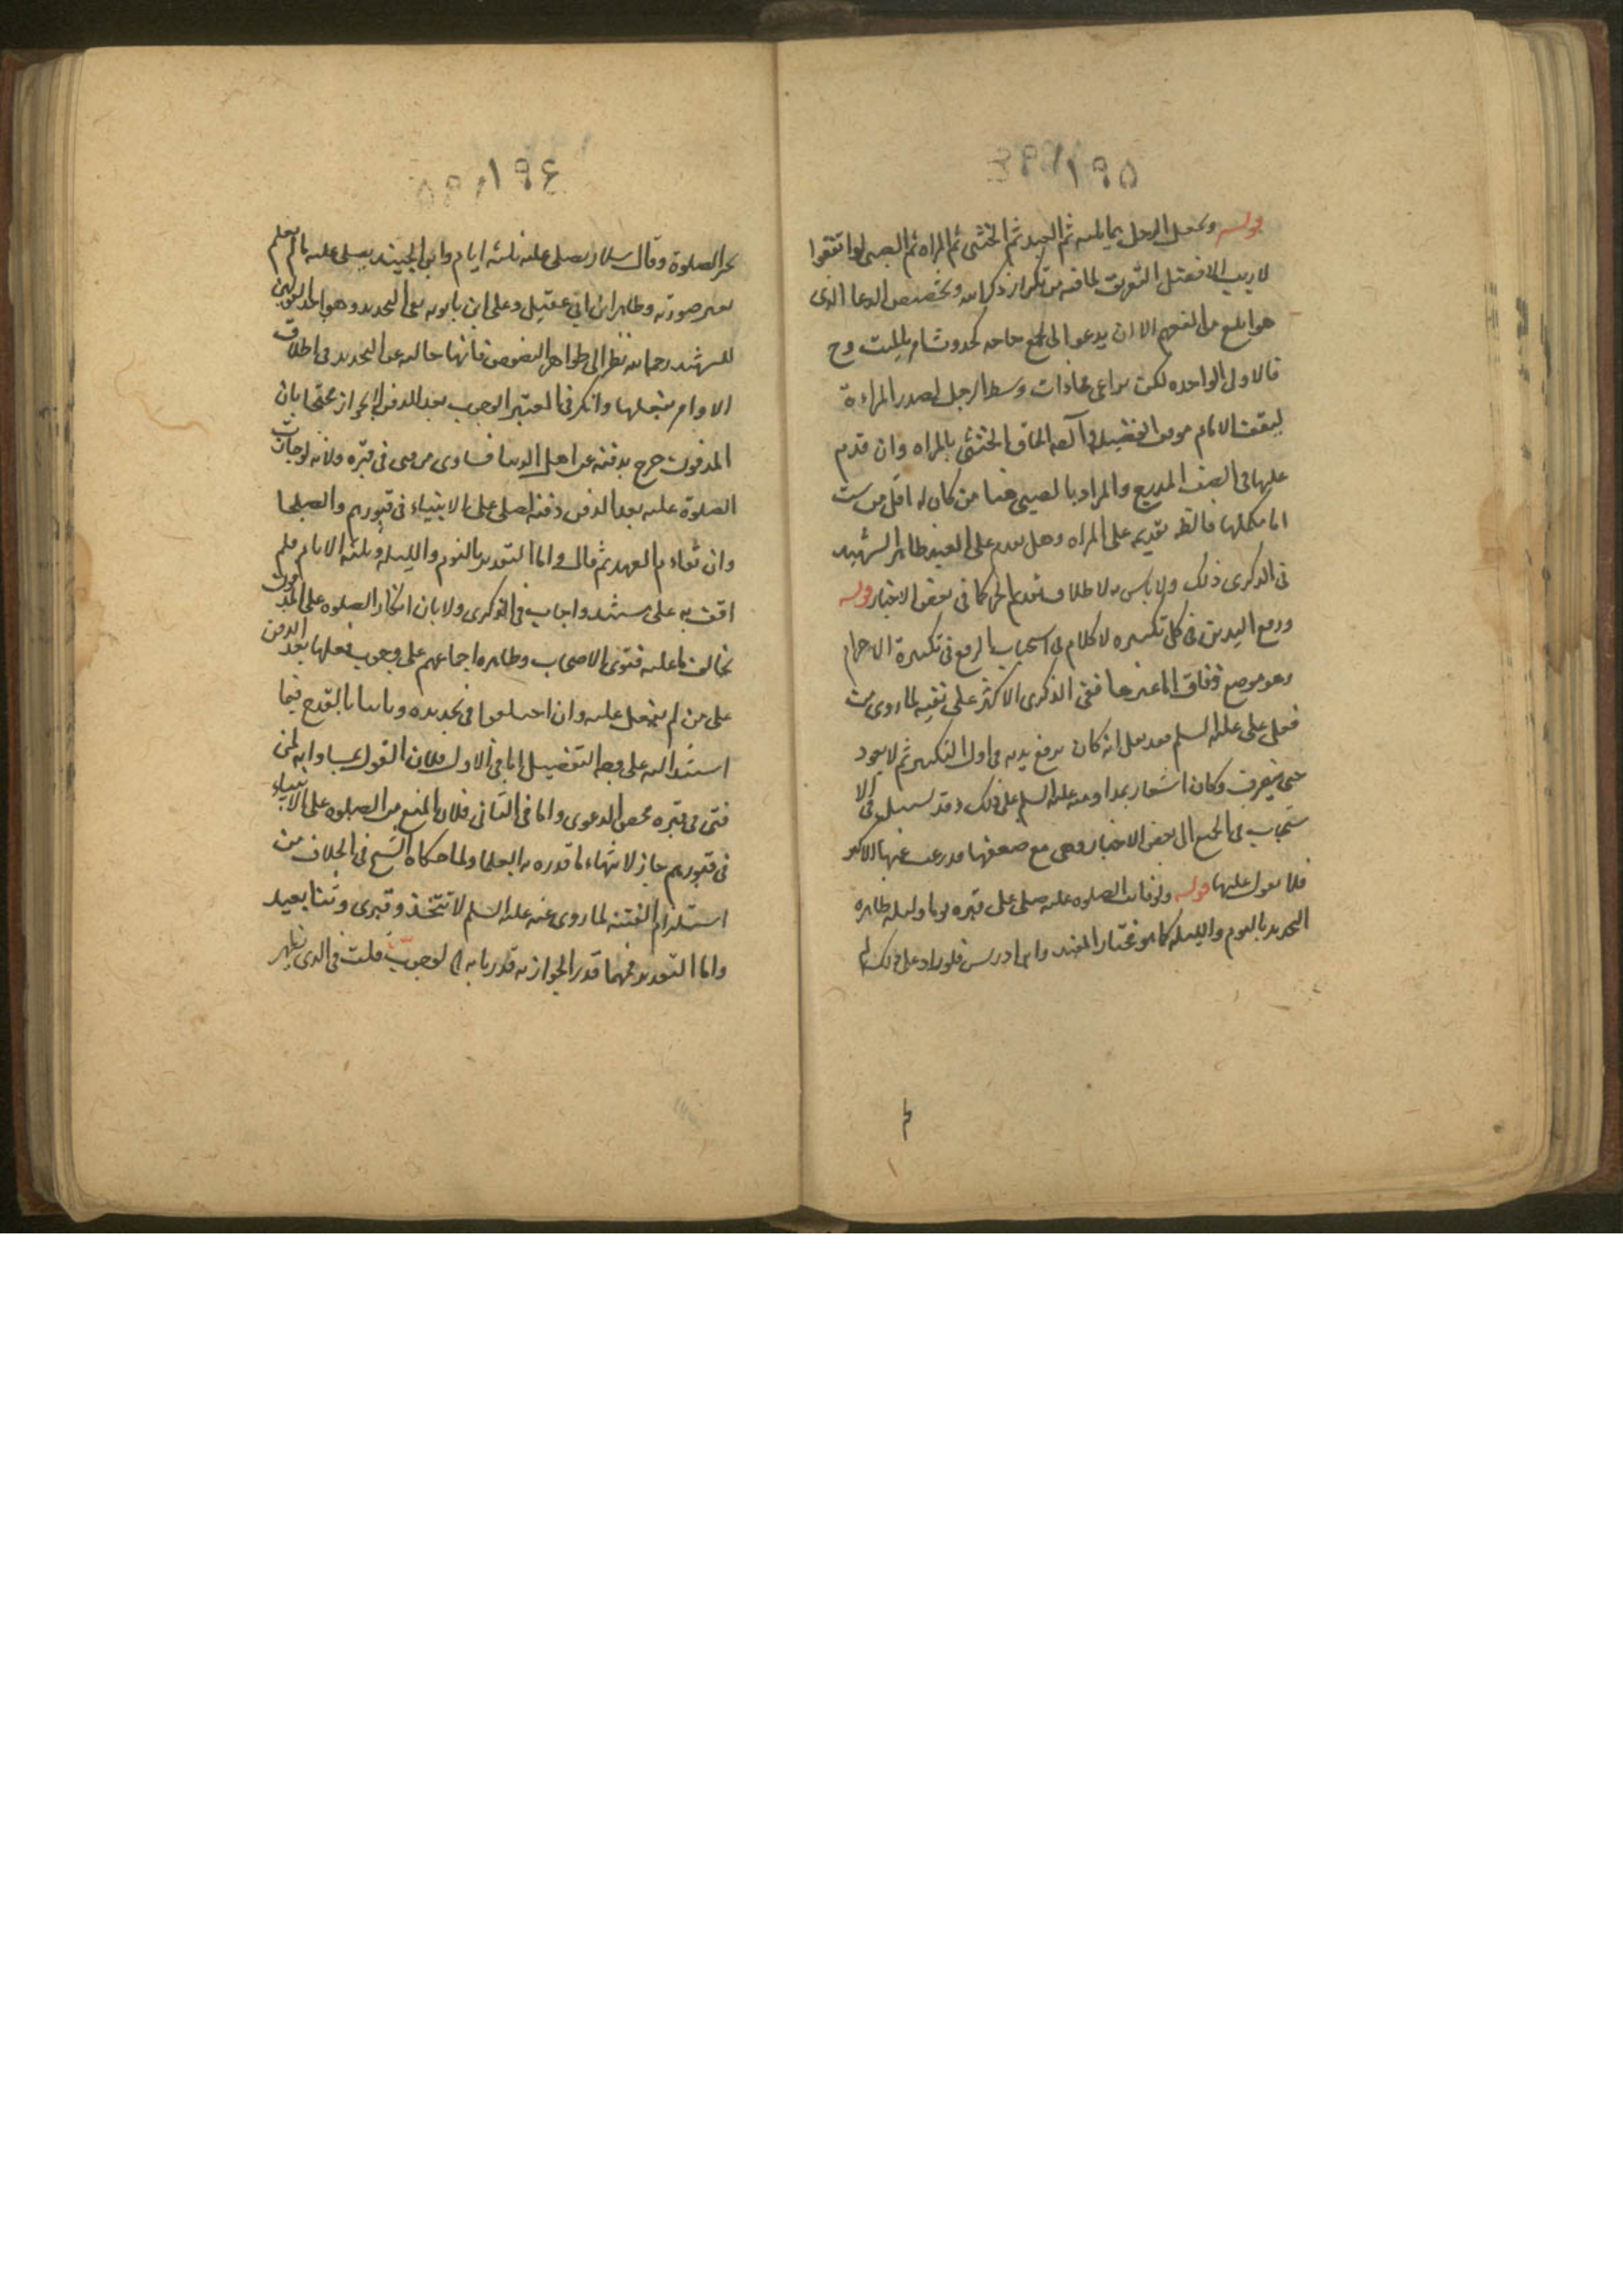 ١٩٥
قوله ويجعل الرجل مما يليه ثم العبد ثم الخنثى ثم المراه ثم الصبى لو اتفقوا
لا ريب الافضل التفريق لما فيه من تكرار ذكر الله وتخصيص الدعا الذى
هو ابلغ من التعميم الا ان يدعو الى الجمع حاجه كحدوث امر بالميت وح
فالاولى الواحده لكن يراعى محاذات وسط الرجل لصدر المراءة
ليقف الامام موقف الفضيله الحاق الخنثى بالمراه وان قدم
عليها فى الصف المدرج والمراد بالصبى هنا من كان له اقل من ست
اما مكملها فالظ تقديمه على المراه وهل يقدم على العبد ظاهر الشهيد
فى الذكرى ذلك ولا باس به لاطلاق تقديم الحر كما فى بعض الاخبار قوله
ورفع اليدين فى كل تكبيره لا كلام فى استحباب الرفع فى تكبيرة الاحرام
وهو موضع وفاق اما غيرها ففى الذكرى الاكثر على نفيه لما روى من
فعل على عليه السلم انه كان يرفع يديه فى اول التكبير ثم لا يعود
حتى ينصرف وكان اشعار بمداومته عليه السلم على ذلك وقد الا
ستحباب فى الجميع الى بعض الاخبار وهى مع ضعفها قد رغب عنها الاكثر
فلا يعول عليها قوله ولو فاتت الصلوه عليه صلى على قبره يوما وليله ظاهره
التحديد باليوم والليله كما هو مختار المفيد وابن ادريس فلو زاد على ذلك لم
١٩٤
تجز الصلوة وقال سلار يصلى عليه ثلثه ايام وابن الجنيد يصلى عليه ما لم يعلم
تغير صورته وظاهر ابن ابى عقيل وعلى ابن بابويه نفى التحديد وهو احد القولين
للشهيد رحمه الله نظرا الى ظواهر النصوص فانها خاليه عن التحديد فى اطلاق
الاوامر بفعلها وانكر فى المعتبر الوجوب بعد الدفن لا الجواز محتجا بان
المدفون خرج بدفنه عن اهل الدنيا فساوى من فنى فى قبره ولانه لو جازت
الصلوة عليه بعد الدفن دفنه لصلى على الانبياء فى قبورهم والصلحا
وان تقادم العهد ثم قال واما التقدير باليوم والليله وثلثه الايام فلم
اقف به على مستند واجاب فى الذكرى ولا بان انكار الصلوه على المدفون
يخالف ما عليه فتوى الاصحاب وظاهره اجماعهم على وجوب فعلها بعد الدفن
على من لم يصل عليه وان اختلفوا فى تحديده وثانيا بالقدح فيما
استند اليه على وجه التفضيل اما فى الاول فلان القول بمساواته لمن
فنى فى قبره محض الدعوى واما فى الثانى فلان المنع من الصلوه على الانبياء
فى قبورهم جاز لانتهاء ما قدره به العلما ولما حكاه الشيخ فى الخلاف من
استلزام الفتنه لما روى عنه عليه السلم لا تتخذو قبرى وثنا يعبد
واما التقدير فمهما قدر الجواز به قدرنا به الوجوب قلت فى الذى يظهر